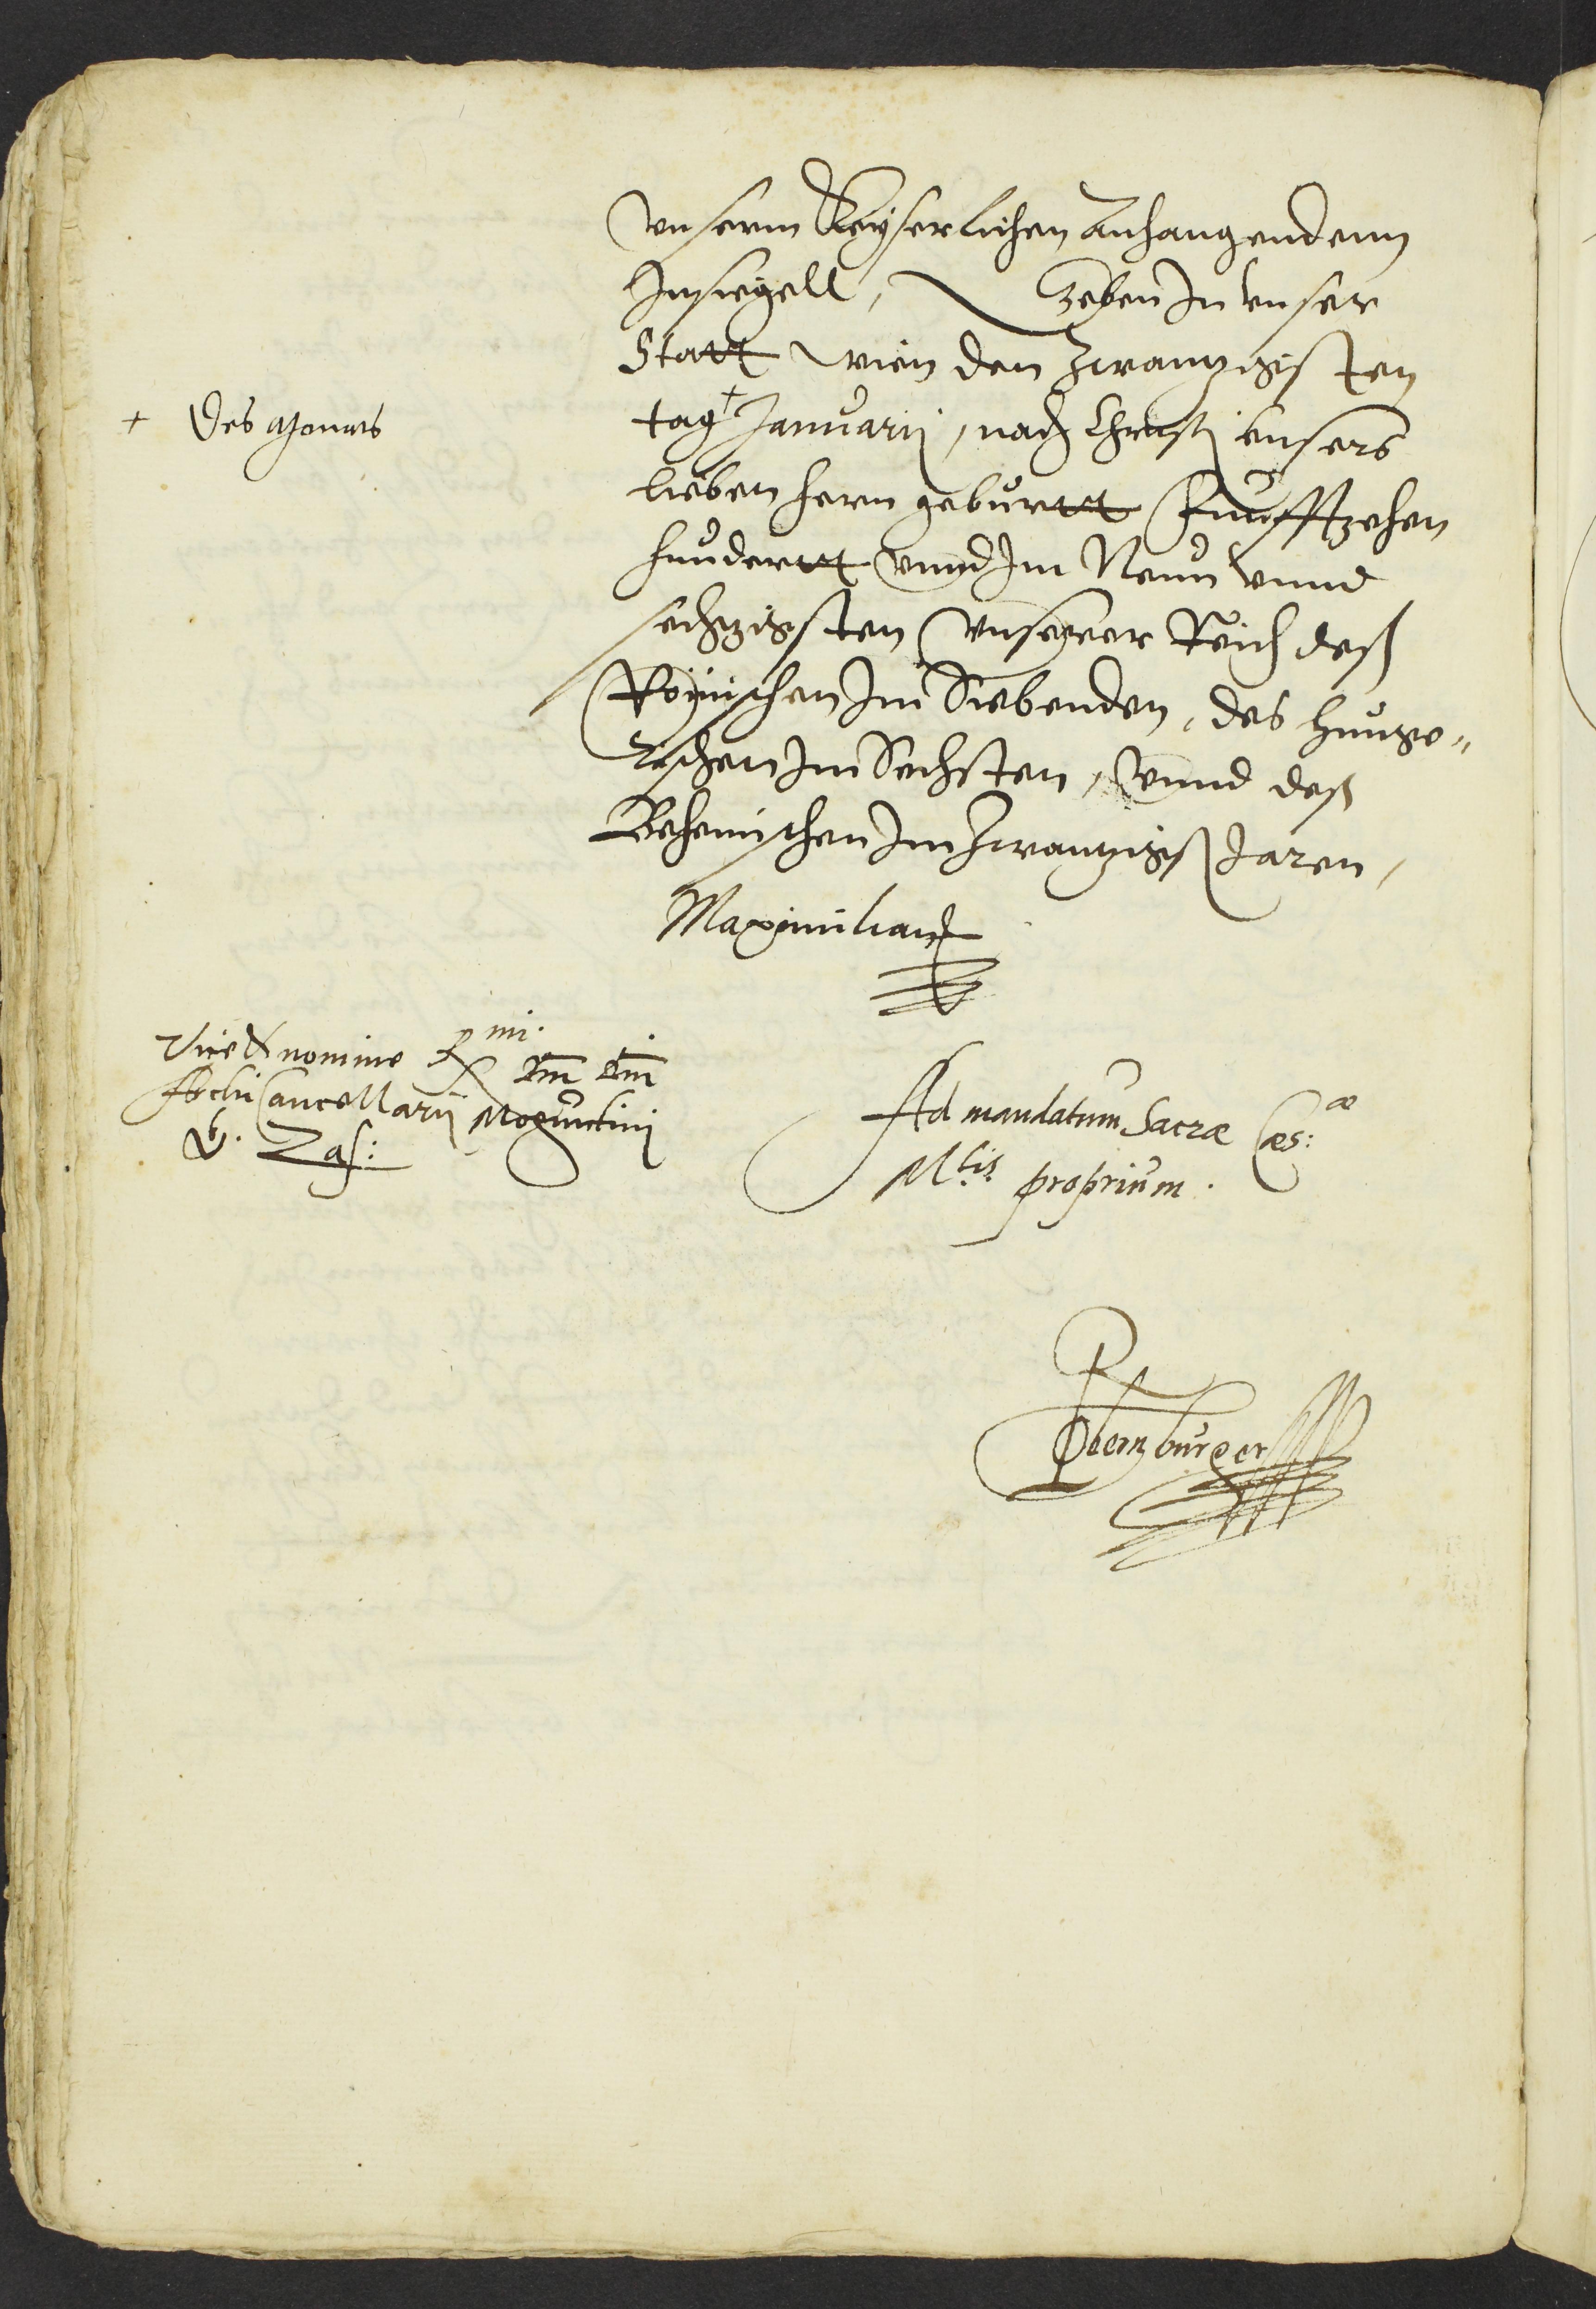 vnserm Keyserlichen anhangendem
Insiegell, Geben In vnser
Statt Wien den Zwantzigisten
+ des Monats
tag + Januarij, nach Christj vnsers
lieben herrn geburtt Funfftzehen
hundertt vnnd Im Neun vnnd
sechzigisten Vnserer Reich deß
Römischen Im Siebenden, des Hunge-
rischen Im Sechsten, Vnnd deß
Behemischen Im Zwantzigist Jaren,
Maximilian
Vice & nomine R mi. Dm Dm
Archi Cancellarij Moguntini
V. Zas:
Ad mandatum Sacræ Cæs: æ
M tis proprium.
P Obernburger